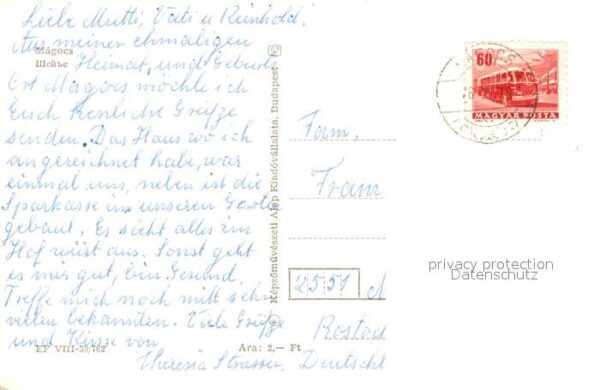 Liebe Mutti, Vati u Reinhold!
Aus meiner ehmaligen
Mágocs
Részlet
Heimat, und Geburts
Ort Mágocs möchte ich
Euch herzliche Grüße
senden. Das Haus wo ich
angezeichnet habe, war
einmal uns, neben ist die
Sparkasse in unseren Garten
gebaut. Es sieht alles im
Hof wüst aus. Sonst geht
es mir gut, bin Gesund.
Treffe mich noch mitt sehr
vielen bekannten. Viele Grüße
und Küsse von
Theresia Strasser
EF VIII-30/762
Ara: 2,— Ft
Képzőművészeti Alap Kiadóvállalata, Budapest
60 f
MAGYAR POSTA
MÁGOCS
Fam.
Franz
2551
Rostock
Deutschl
privacy protection
Datenschutz